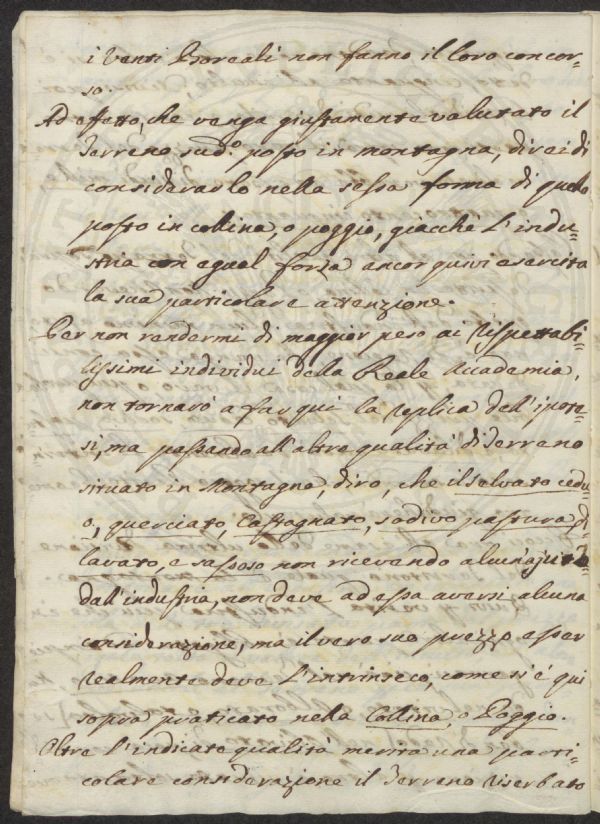 i Venti Boreali non fanno il loro concor=
so.
Ad effetto, che venga giustamente valutato il
Terreno sud.º posto in montagna, direi di
considerarlo nella stessa forma di quello
posto in collina, o poggio, giacché l'indu=
stria con egual forza ancor quivi esercita
la sua particolare attenzione.
Per non rendermi di maggior peso ai Rispettabi=
lissimi individui della Reale Accademia,
non tornarò a far qui la replica dell'ipote=
si, ma passando all'altre qualità di Terreno
situato in Montagna, dirò, che il selvato cedu=
o, querciato, Castagnato, sodivo pastura di
lavato, e sassoso non ricevendo alcun'ajuto
dall'industria, non deve ad essa aversi alcuna
considerazione, ma il vero suo prezzo esser
realmente deve l'intrinseco, come si è qui
sopra praticato nella Collina o Poggio.
Oltre l'indicate qualità merita una parti
colare considerazione il Terreno riserbato